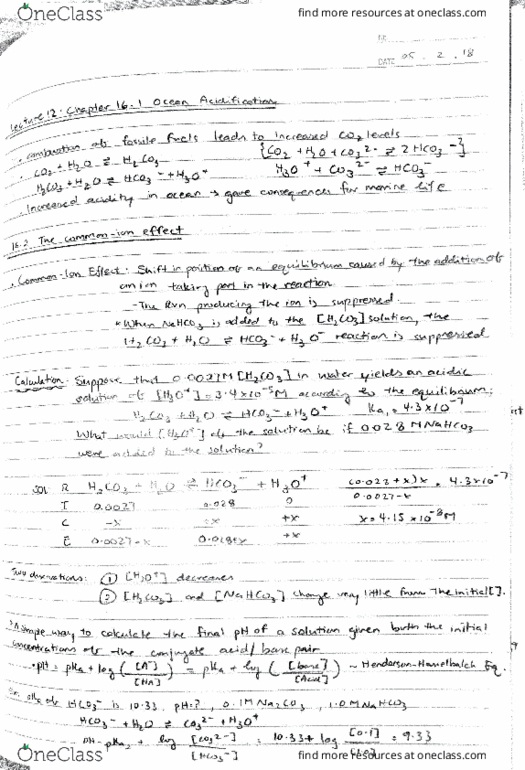 OneClass
find more resources at oneclass.com
DATE 05 . 2 . 18
Lecture 12: Chapter 16.1 Ocean Acidification
. combustion of fossile fuels leads to increased CO₂ levels
. CO₂ + H₂O ⇌ H₂CO₃ {CO₂ + H₂O + CO₃²⁻ ⇌ 2HCO₃⁻}
H₂CO₃ + H₂O ⇌ HCO₃⁻ + H₃O⁺ H₃O⁺ + CO₃²⁻ ⇌ HCO₃⁻
. Increased acidity in ocean → grave consequences for marine life
16.2 The common-ion effect
. Common-Ion Effect: Shift in position of an equilibrium caused by the addition of
an ion taking part in the reaction
- The Rxn producing the ion is suppressed
* When NaHCO₃ is added to the [H₂CO₃] solution, the
H₂CO₃ + H₂O ⇌ HCO₃⁻ + H₃O⁺ reaction is suppressed
Calculation: Suppose that 0.0027M [H₂CO₃] in water yields an acidic
solution of [H₃O⁺] = 3.4×10⁻⁵M according to the equilibrium:
H₂CO₃ + H₂O ⇌ HCO₃⁻ + H₃O⁺ Ka₁ = 4.3×10⁻⁷
What would [H₃O⁺] of the solution be if 0.028 M NaHCO₃
were added to the solution?
Sol R H₂CO₃ + H₂O ⇌ HCO₃⁻ + H₃O⁺ (0.022+x)x = 4.3×10⁻⁷
I 0.0027 0.028 0 0.0027-x
C -x +x +x x = 4.15 ×10⁻⁸M
E 0.0027-x 0.028+x +x
Two observations: ① [H₃O⁺] decreases
② [H₂CO₃] and [NaHCO₃] change very little from the initial [ ].
A simple way to calculate the final pH of a solution given both the initial
concentrations of the conjugate acid/base pair
. pH = pKa + log([A⁻]/[HA]) = pKa + log([base]/[Acid]) ~ Henderson-Hasselbalch Eq.
pKa of HCO₃⁻ is 10.33. pH=?, 0.1M Na₂CO₃, 1.0M NaHCO₃
HCO₃⁻ + H₂O ⇌ CO₃²⁻ + H₃O⁺
pH = pKa + log [CO₃²⁻]/[HCO₃⁻] = 10.33 + log [0.1] = 9.33
OneClass
find more resources at oneclass.com